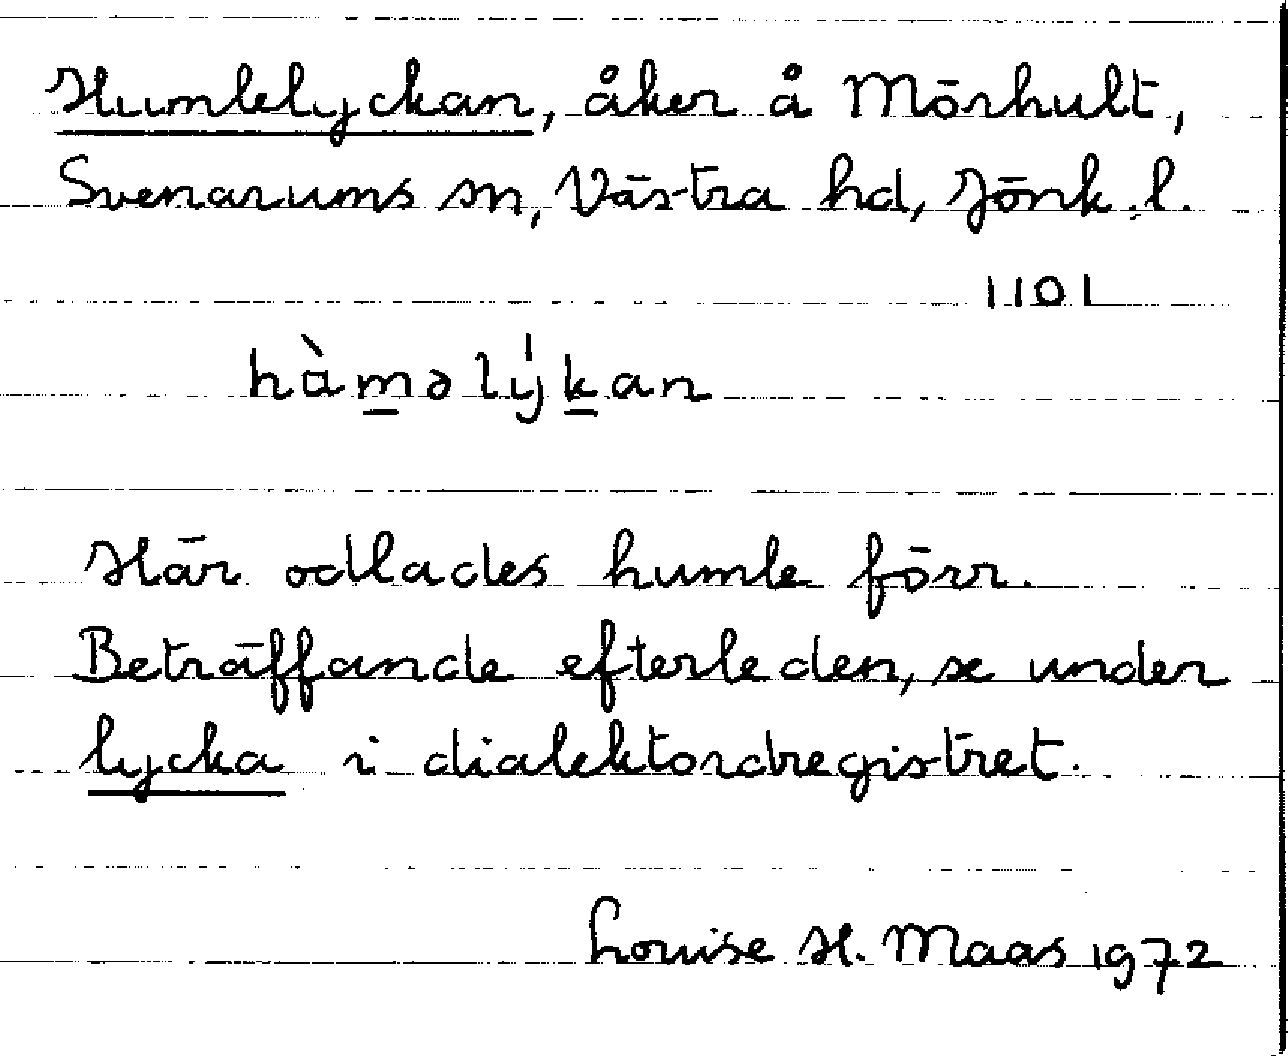 Humlelyckan, åker å Mörhult,
Svenarums sn, Västra hd, Jönk.l.
1101
hàmǝlýkan
Här odlades humle förr.
Beträffande efterleden, se under
lycka i dialektordregistret.
Louise H. Maas 1972